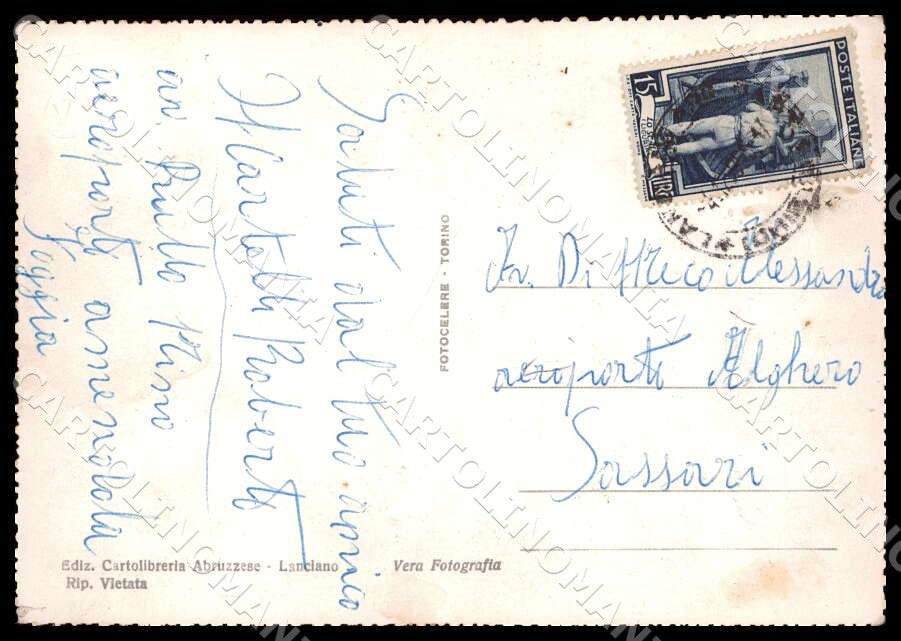 Saluti dal tuo amico
Martelli Roberto
av. Prullo Nino
aeroporto amendola
Foggia
FOTOCELERE - TORINO
Ediz. Cartolibreria Abruzzese - Lanciano
Rip. Vietata
Vera Fotografia
POSTE ITALIANE
15
LIRE
Av. Di Meco Alessandro
aeroporto Alghero
Sassari
CARTOLINOMANIA